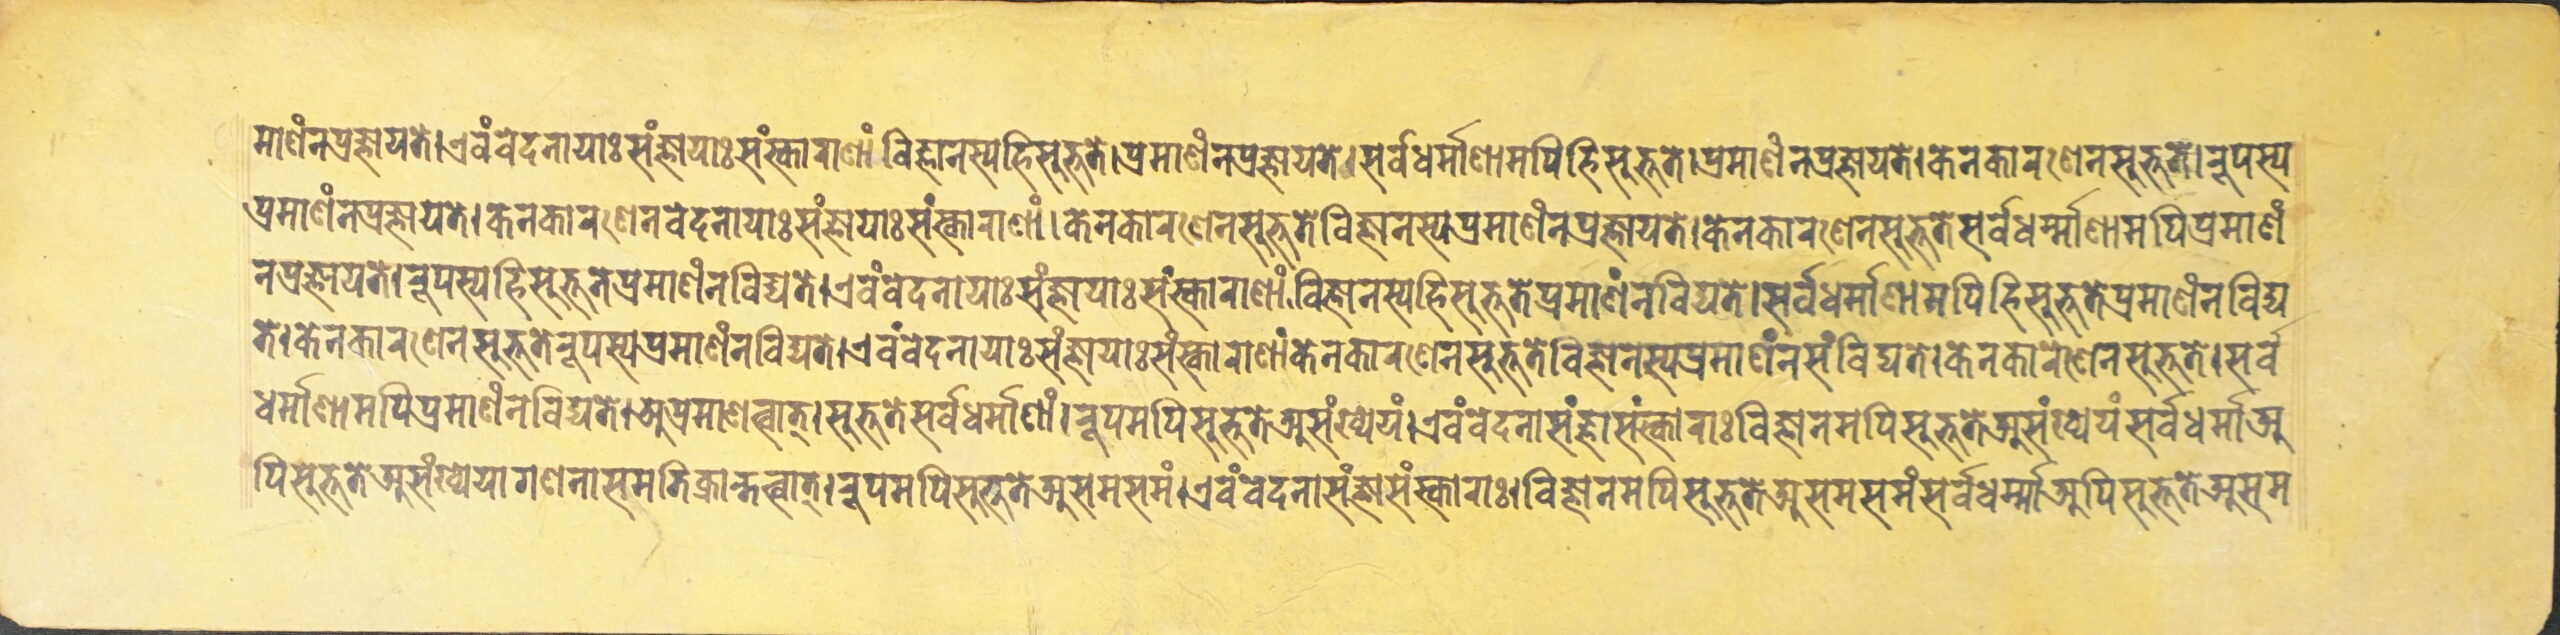 माणंनप्रज्ञायते।एवंवेदनायाःसंज्ञायाःसंस्काराणां विज्ञानस्यहिसुभुते।प्रमाणंनप्रज्ञायते।सर्वधर्माणामपिहिसुभुते।प्रमाणंनप्रज्ञायते।केनकारणेनसुभुते।रूपस्य
प्रमाणंनप्रज्ञायते।केनकारणेनवेदनायाःसंज्ञायाःसंस्काराणां।केनकारणेनसुभुतेविज्ञानस्यप्रमाणंनप्रज्ञायते।केनकारणेनसुभुतेसर्वधर्म्माणामपिप्रमाणं
नप्रज्ञायते।रूपस्यहिसुभुतेप्रमाणंनविद्यते।एवंवेदनायाःसंज्ञायाःसंस्काराणां विज्ञानस्यहिसुभुतेप्रमाणंनविद्यते।सर्वधर्माणामपिहिसुभुतेप्रमाणंनविद्य
ते।केनकारणेनसुभुतेरूपस्यप्रमाणंनविद्यते।एवंवेदनायाःसंज्ञायाःसंस्काराणांकेनकारणेनसुभुतेविज्ञानस्यप्रमाणंनसंविद्यते।केनकारणेनसुभुते।सर्व
धर्माणामपिप्रमाणंनविद्यते।अप्रमाणत्वात्।सुभुतेसर्वधर्माणां।रूपमपिसुभुतेअसंख्येयं।एवंवेदनासंज्ञासंस्काराःविज्ञानमपिसुभुतेअसंख्येयंसर्वधर्माअ
पिसुभुतेअसंख्येयागणनासमतिक्रान्तत्वात्।रूपमपिसुभुतेअसमसमं।एवंवेदनासंज्ञासंस्काराः।विज्ञानमपिसुभुतेअसमसमंसर्वधर्म्माअपिसुभुतेअसम